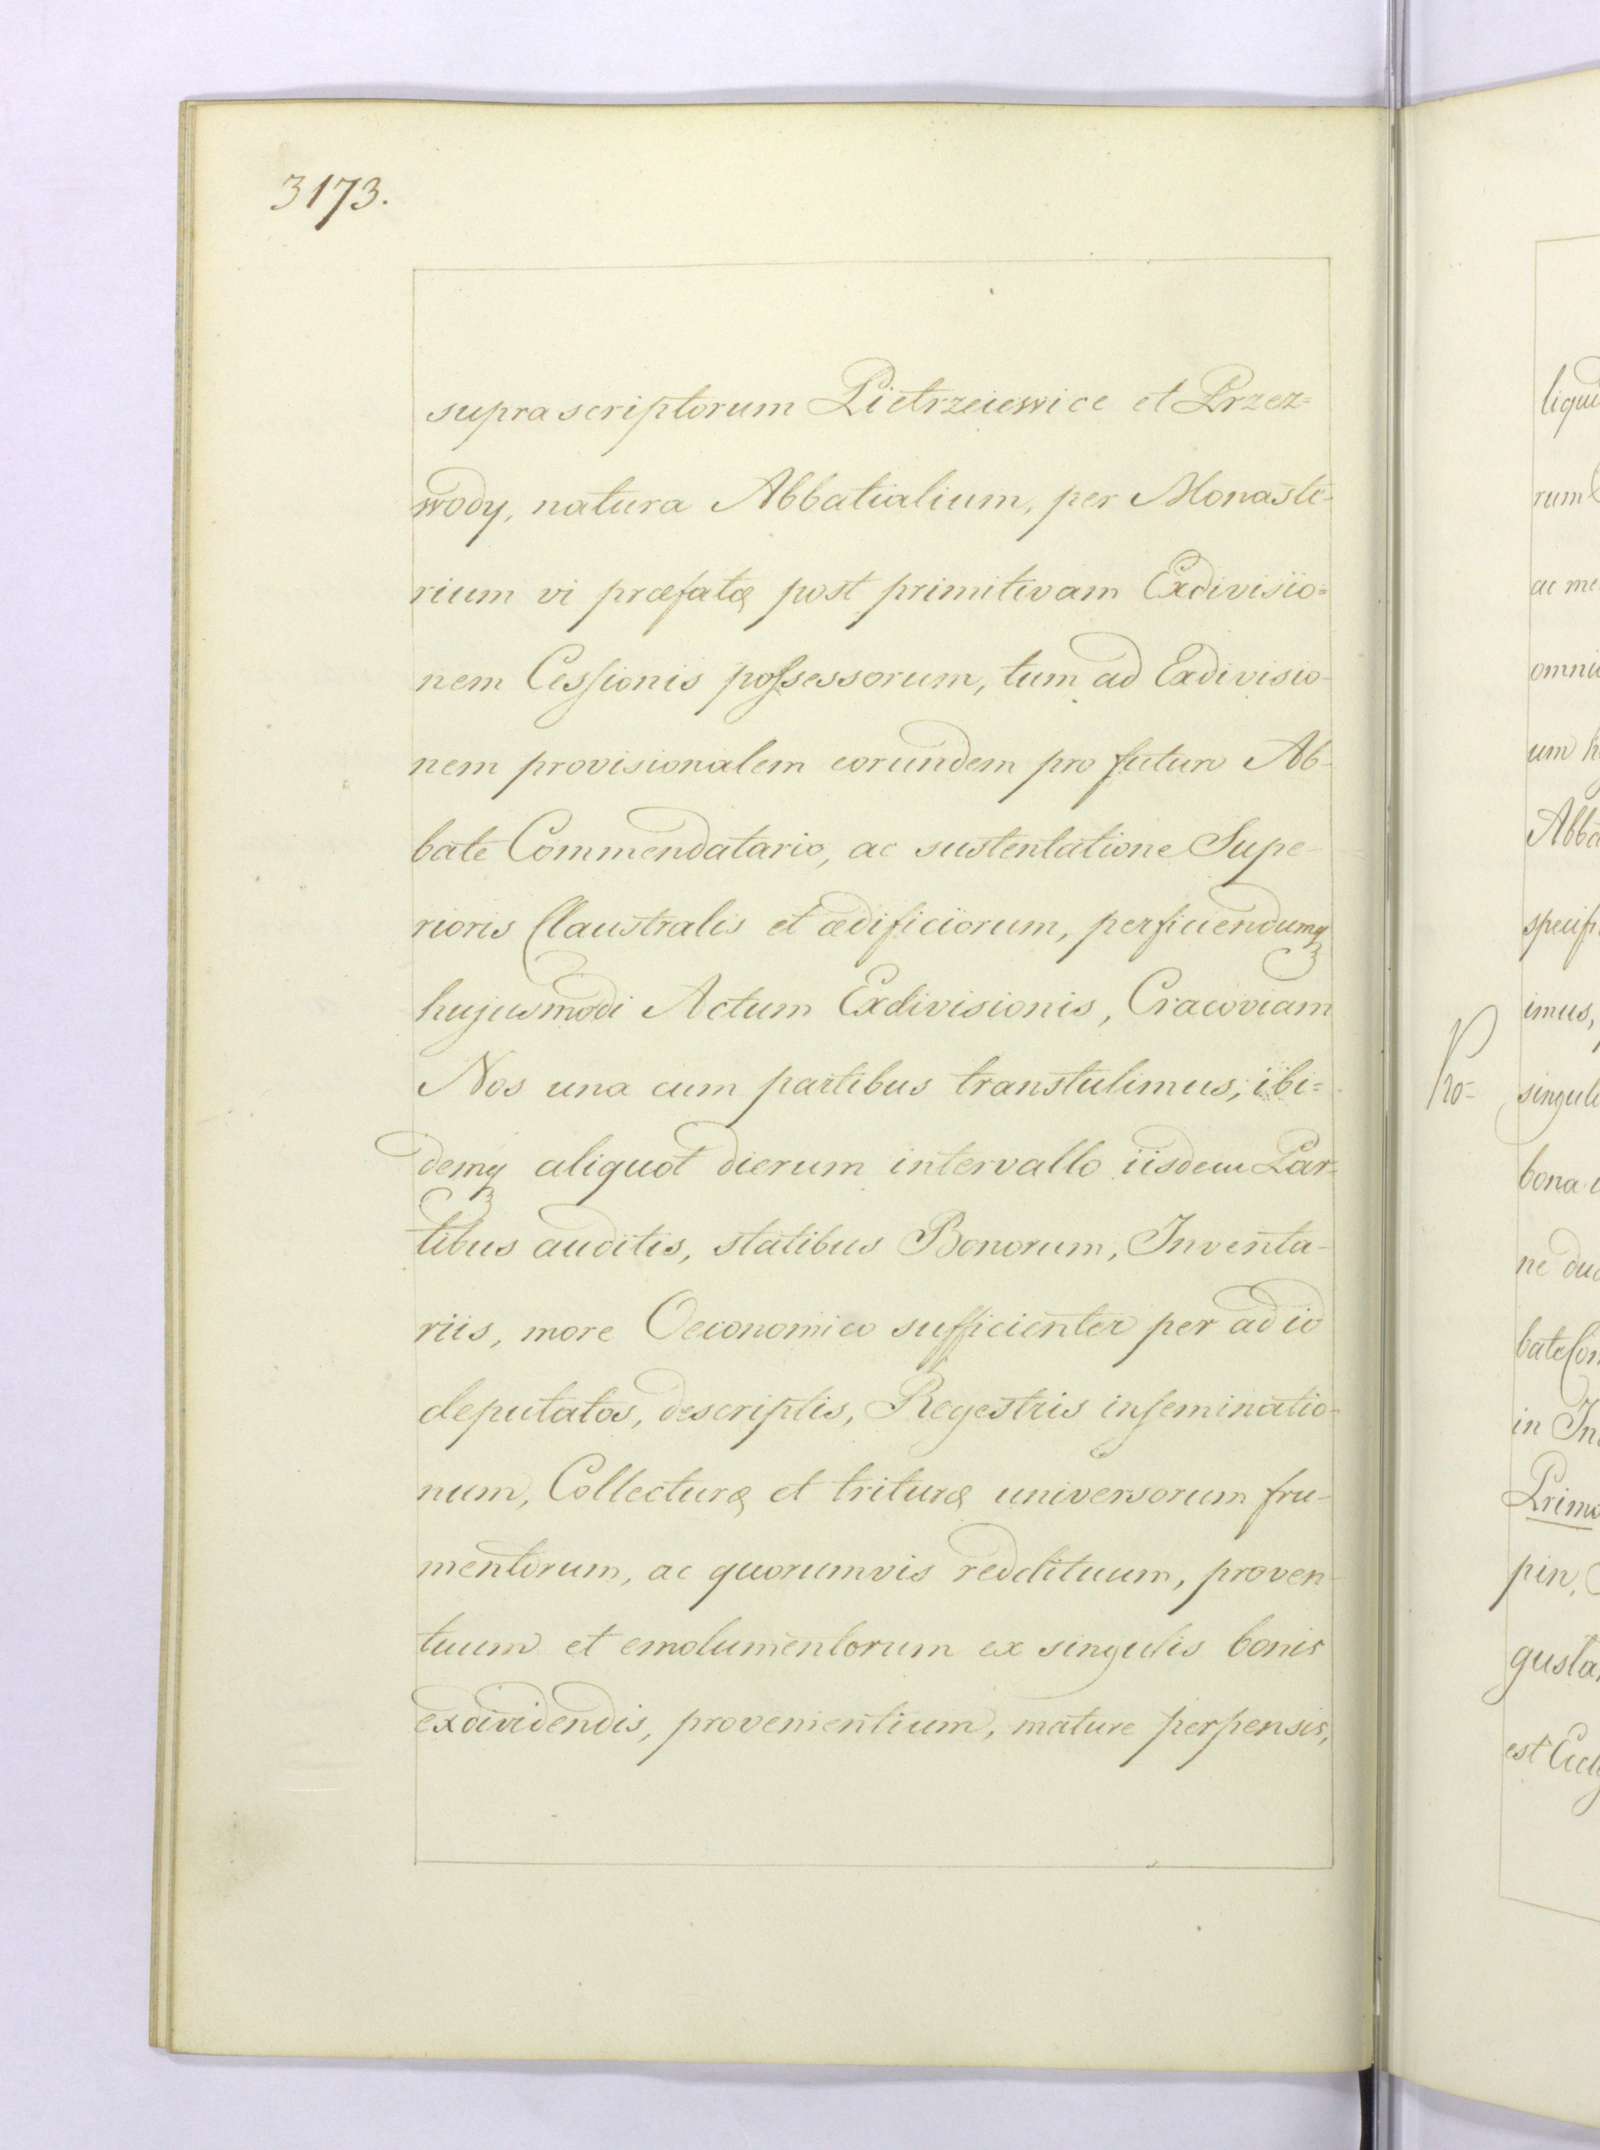 3173.
supra scriptorum Pietrzeiewice et Przez=
wody, natura Abbatialium, per Monaste-
rium vi præfatæ post primitivam Exdivisio=
nem Cessionis possessorum, tum ad Exdivisio-
nem provisionalem eorundem pro futuro Ab-
bate Commendatario, ac sustentatione Supe-
rioris Claustralis et ædificiorum, perficiendumq
hujusmodi Actum Exdivisionis, Cracoviam
Nos una cum partibus transtulimus, ibi=
demq aliquot dierum intervallo iisdem Par-
tibus auditis, statibus Bonorum, Inventa-
riis, more Oeconomico sufficienter per ad id
deputatos, descriptis, Regestris inseminatio-
num, Collecturæ et trituræ universorum fru-
mentorum, ac quorumvis reddituum, proven-
tuum et emolumentorum ex singulis bonis
exdividendis, provenientium, mature perpensis,
liqui
rum
ac me
omni
um h
Abba
specifi
imus,
Pro- singuli
bona
ne du
bate Com
in In
Primo
pin,
gusta
est